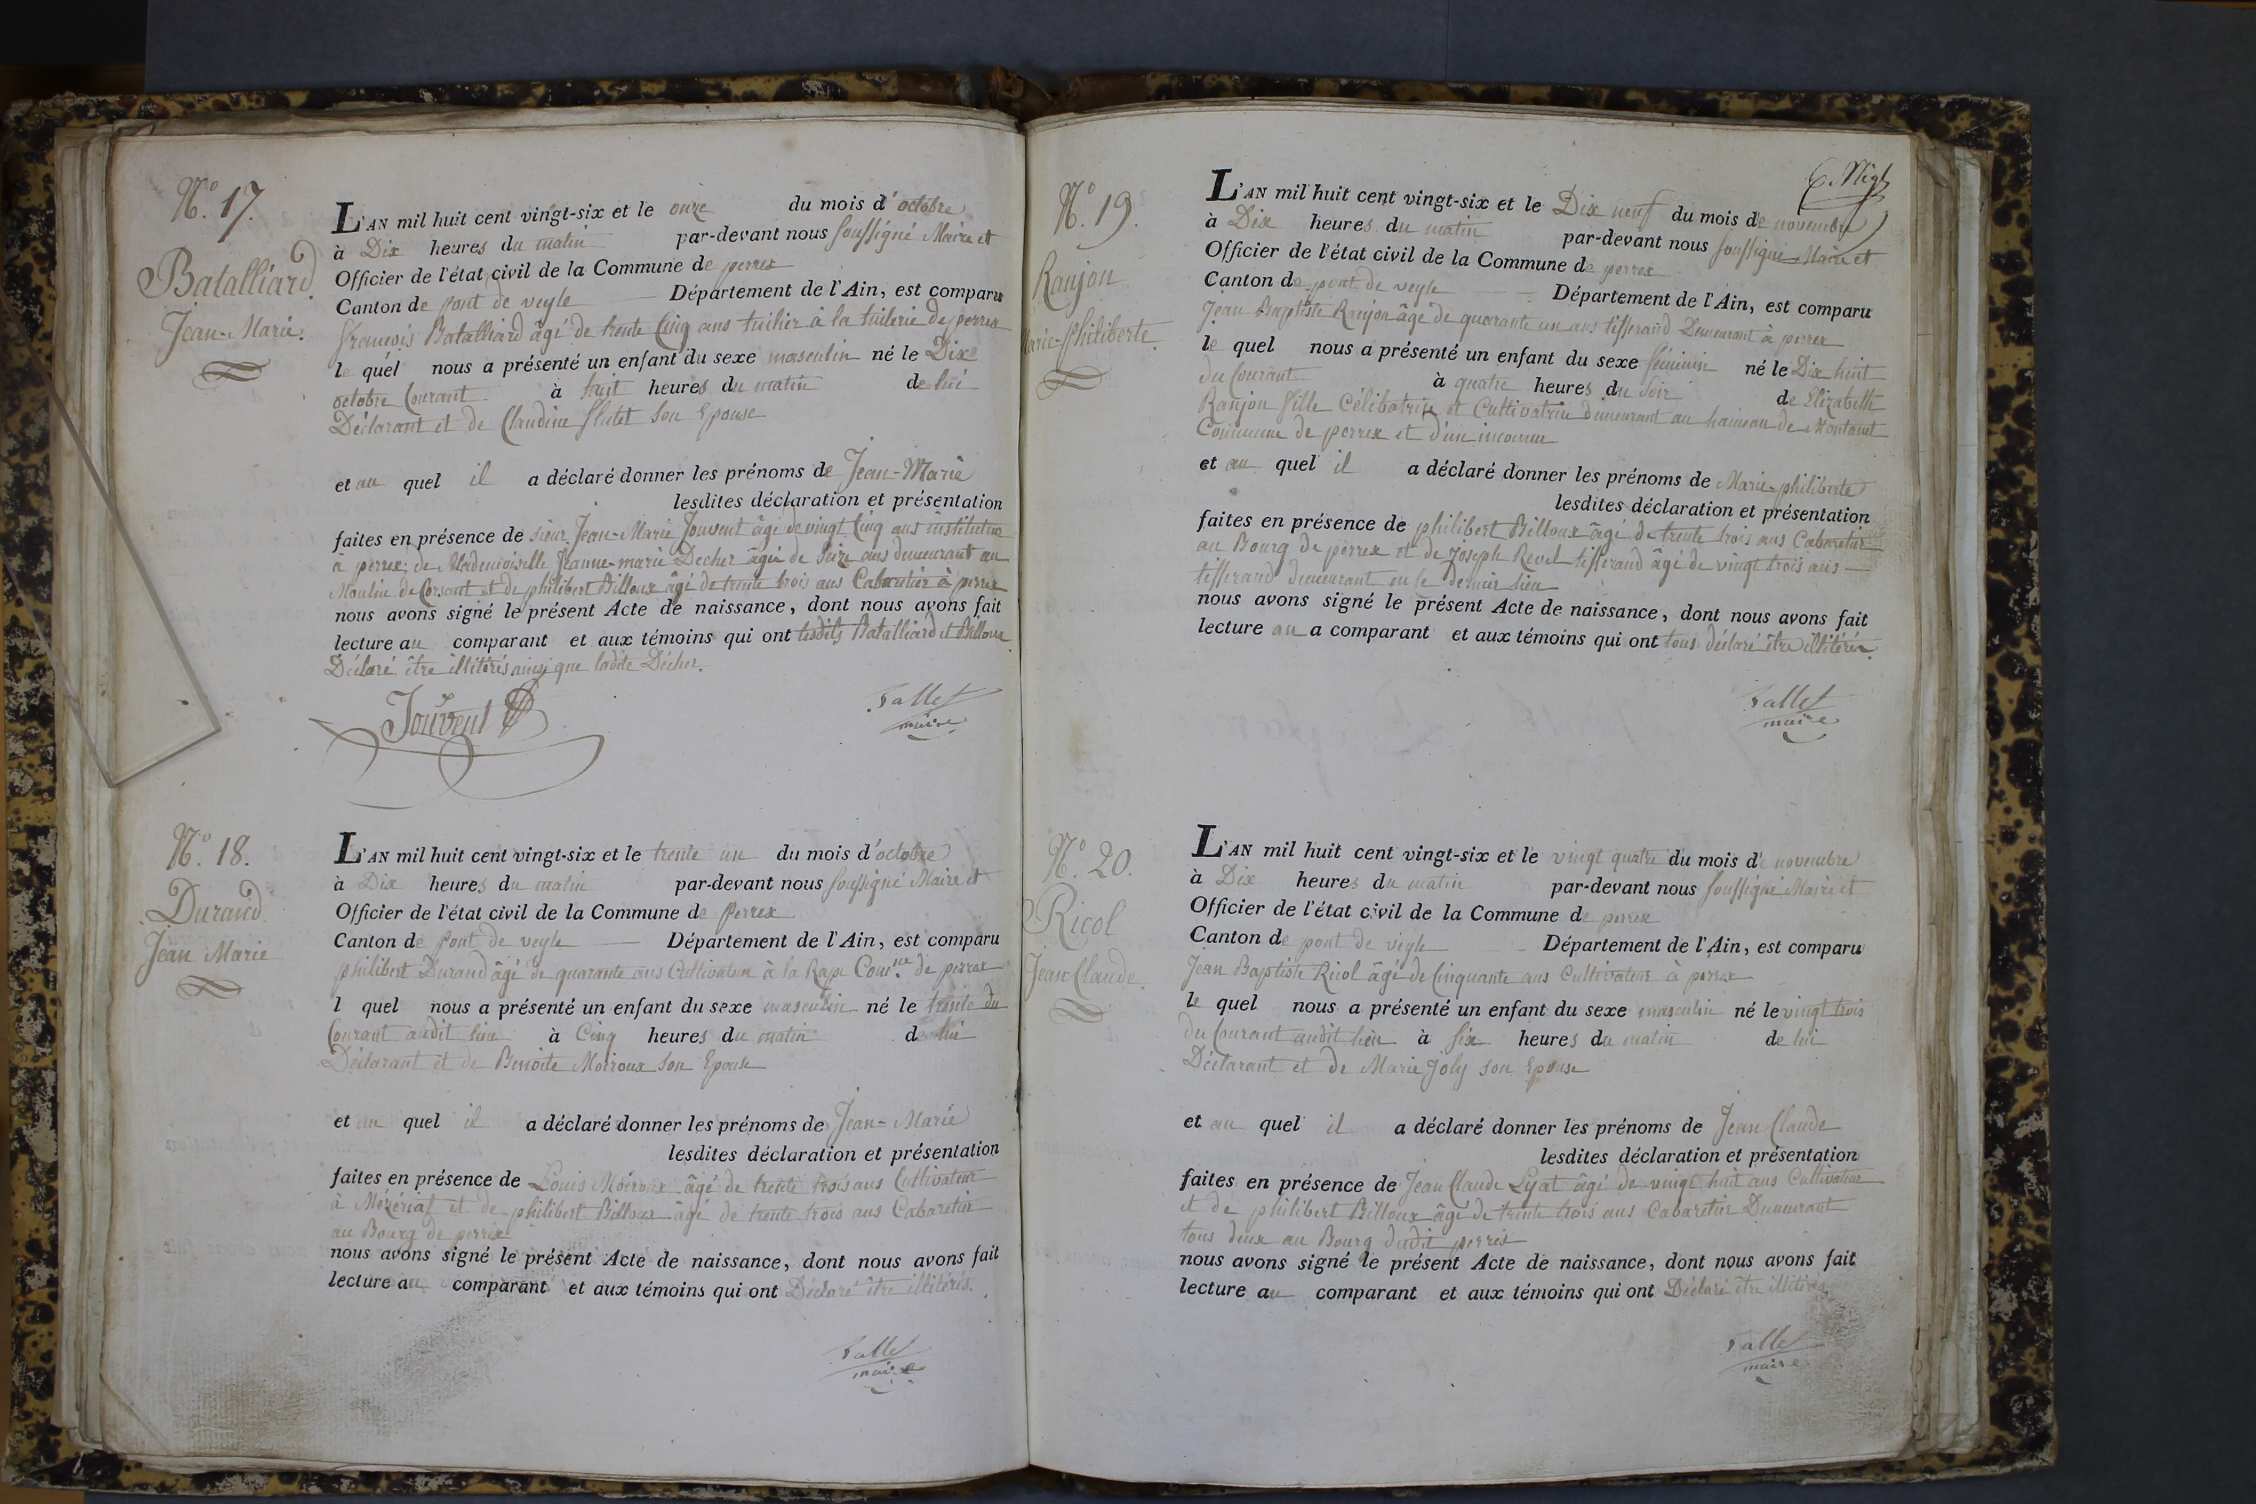 N.º 17.
Batalliard
Jean-Marie.
L'AN mil huit cent vingt-six et le onze du mois d'octobre
à Dix heures du matin par-devant nous soussigné Maire et
Officier de l'état civil de la Commune de perrex
Canton de pont de veyle Département de l'Ain, est comparu
françois Batalliard âgé de trente Cinq ans tuilier à la tuilerie de perrex
le quel nous a présenté un enfant du sexe masculin né le Dix
octobre Courant à huit heures du matin de lui
Déclarant et de Claudine flutet son Epouse
et au quel il a déclaré donner les prénoms de Jean-Marie
lesdites déclaration et présentation
faites en présence de sieur Jean-Marie Jouvent âgé de vingt Cinq ans instituteur
à perrex; de Mademoiselle Jeanne-marie Decher âgée de seize ans demeurant au
Moulin de Corsant et de philibert Billoux âgé de trente trois ans Cabaretier à perrex
nous avons signé le présent Acte de naissance, dont nous avons fait
lecture au comparant et aux témoins qui ont lesdits Batalliard et Billoux
Déclaré être illitérés ainsi que ladite Décher.
Jouvent
Tallet
maire
N.º 18.
Durand
Jean Marie
L'AN mil huit cent vingt-six et le trente un du mois d'octobre
à Dix heures du matin par-devant nous soussigné Maire et
Officier de l'état civil de la Commune de Perrex
Canton de pont de veyle Département de l'Ain, est comparu
philibert Durand âgé de quarante ans Cultivateur à la Rape Com.ne de perrex
l quel nous a présenté un enfant du sexe masculin né le trente du
Courant audit lieu à Cinq heures du matin de lui
Déclarant et de Benoite Moiroux son Epouse
et au quel il a déclaré donner les prénoms de Jean-Marie
lesdites déclaration et présentation
faites en présence de Louis Moiroux âgé de trente trois ans Cultivateur
à Mézériat et de philibert Billoux âgé de trente trois ans Cabaretier
au Bourg de perrex
nous avons signé le présent Acte de naissance, dont nous avons fait
lecture au comparant et aux témoins qui ont Déclaré être illitérés.
Tallet
maire
N.º 19.
Ranjon
Marie-philiberte.
L'AN mil huit cent vingt-six et le Dix neuf du mois de novembre
à Dix heures du matin par-devant nous soussigné Maire et
Officier de l'état civil de la Commune de perrex
Canton de pont de veyle Département de l'Ain, est comparu
Jean Baptiste Ranjon âgé de quarante un ans tisserand Demeurant à perrex
le quel nous a présenté un enfant du sexe féminin né le Dix huit
du Courant à quatre heures du soir de Elizabeth
Ranjon fille Célibatrice et Cultivatrice demeurant au hameau de Montanet
Commune de perrex et d'un inconnu
et au quel il a déclaré donner les prénoms de Marie-philiberte
lesdites déclaration et présentation
faites en présence de philibert Billoux âgé de trente trois ans Cabaretier
au Bourg de perrex et de Joseph Revel tisserand âgé de vingt trois ans
tisserand demeurant en le dernier lieu
nous avons signé le présent Acte de naissance, dont nous avons fait
lecture au a comparant et aux témoins qui ont tous déclaré être illitérés.
Tallet
maire
N.º 20.
Ricol
Jean Claude.
L'AN mil huit cent vingt-six et le vingt quatre du mois d novembre
à Dix heures du matin par-devant nous soussigné Maire et
Officier de l'état civil de la Commune de perrex
Canton de pont de veyle Département de l'Ain, est comparu
Jean Baptiste Ricol âgé de Cinquante ans Cultivateur à perrex
le quel nous a présenté un enfant du sexe masculin né le vingt trois
du Courant audit lieu à six heures du matin de lui
Déclarant et de Marie Joly son Epouse
et au quel il a déclaré donner les prénoms de Jean Claude
lesdites déclaration et présentation
faites en présence de Jean Claude Lyat âgé de vingt huit ans Cultivateur
et de philibert Billoux âgé de trente trois ans Cabaretier Demeurant
tous deux au Bourg dudit perrex
nous avons signé le présent Acte de naissance, dont nous avons fait
lecture au comparant et aux témoins qui ont Déclaré être illitérés
Tallet
maire